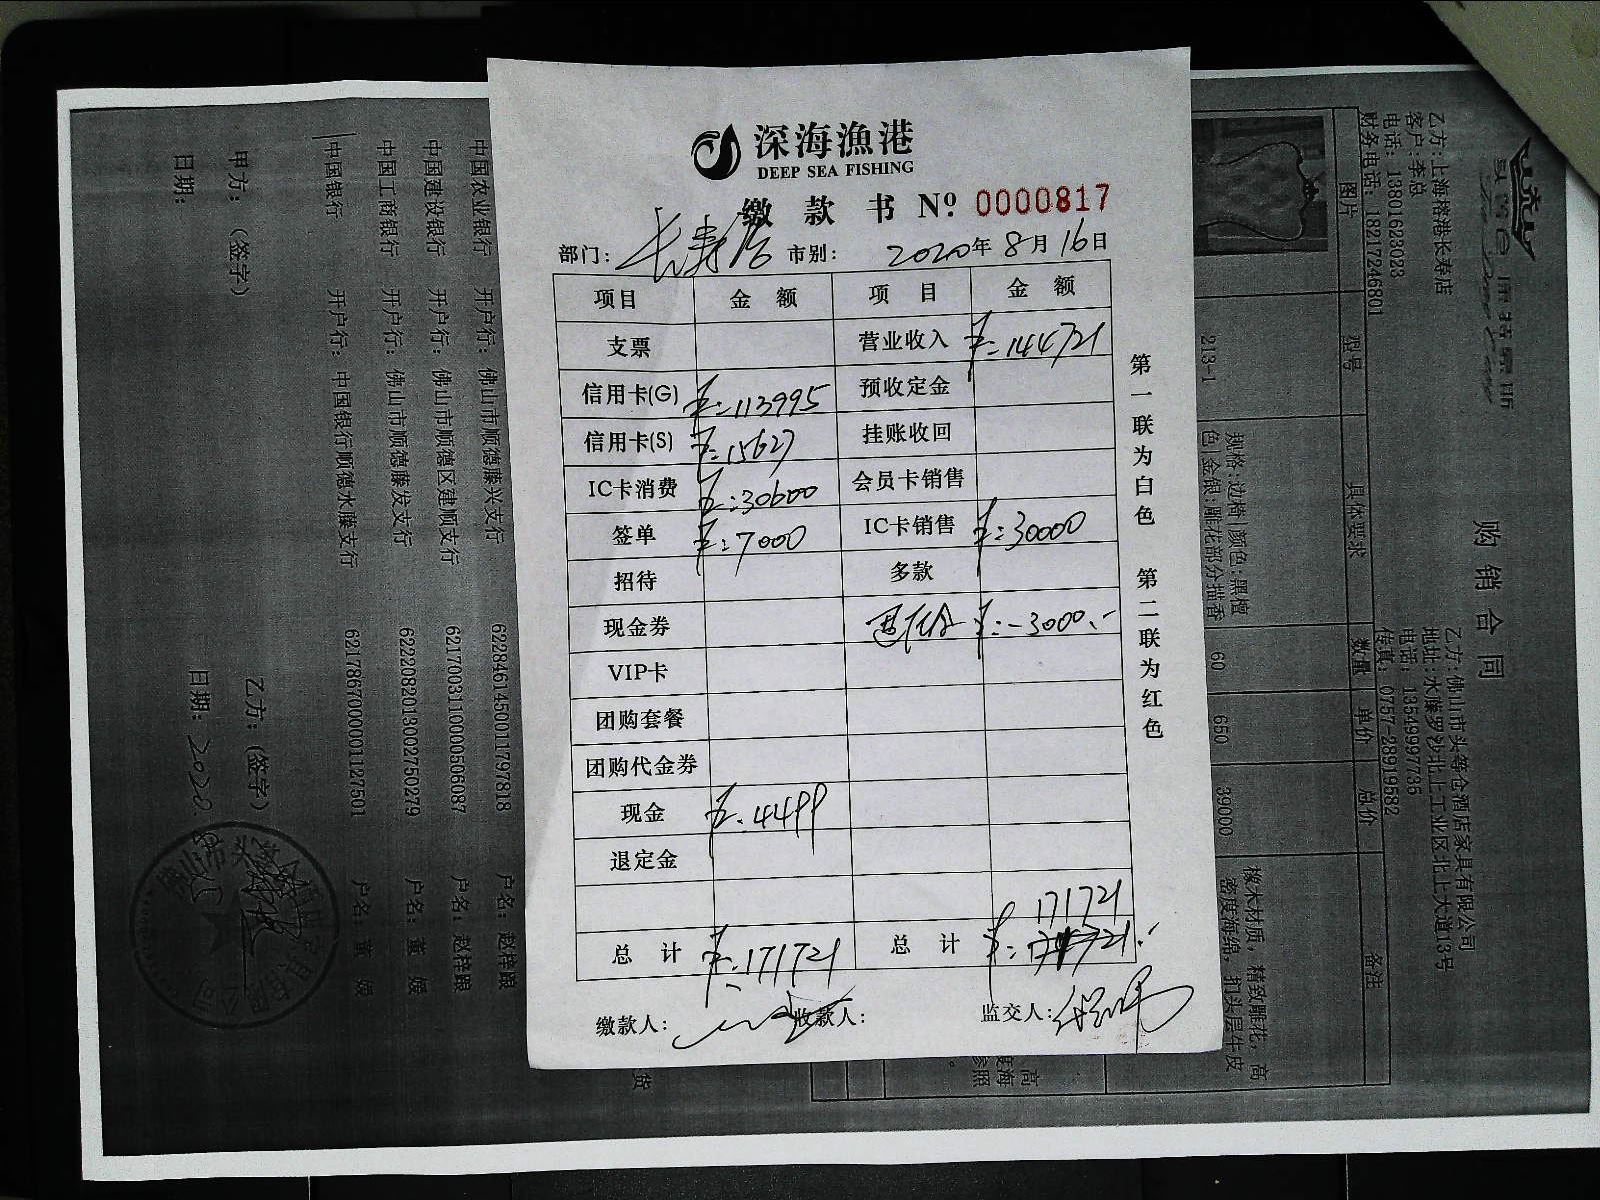 深海漁港
DEEP SEA FISHING
缴款书 Nº. 0000817
部门: 长寿店 市别: 2020年8月16日
项目 金额 项目 金额
支票 营业收入 ¥:144721
信用卡(G) ¥:113995 预收定金
信用卡(S) ¥:15627 挂账收回
IC卡消费 ¥:30600 会员卡销售
签单 ¥:7000 IC卡销售 ¥:30000
招待 多款
现金券 ¥:-3000.-
VIP卡
团购套餐
团购代金券
现金 ¥:4499
退定金
171721
总计 ¥:171721 总计
缴款人: 收款人: 监交人:
第一联为白色 第二联为红色
购销合同
乙方:上海榕港长寿店
客户:李总
电话: 13801623023
财务电话: 18217246801
乙方: 佛山市头等仓酒店家具有限公司
地址: 水藤罗沙北上工业区北上大道13号
电话: 13549997735
传真: 0757-28919582
图片 型号 具体要求 数量 单价 总价 备注
213-1
规格:边椅|颜色:黑檀
色|金银:雕花部分描香
60 650 39000
橡木材质, 精致雕花, 高
密度海绵, 扪头层牛皮
中国农业银行 开户行: 佛山市顺德藤兴支行 6228461450011797818 户名: 赵梓踉
中国建设银行 开户行: 佛山市顺德区建顺支行 6217003110000506087 户名: 赵梓踉
中国工商银行 开户行: 佛山市顺德藤发支行 6222082013002750279 户名: 董 媛
中国银行 开户行: 中国银行顺德水藤支行 6217867000001127501 户名: 董 媛
甲方: (签字) 乙方: (签字)
日期: 日期: 2020.